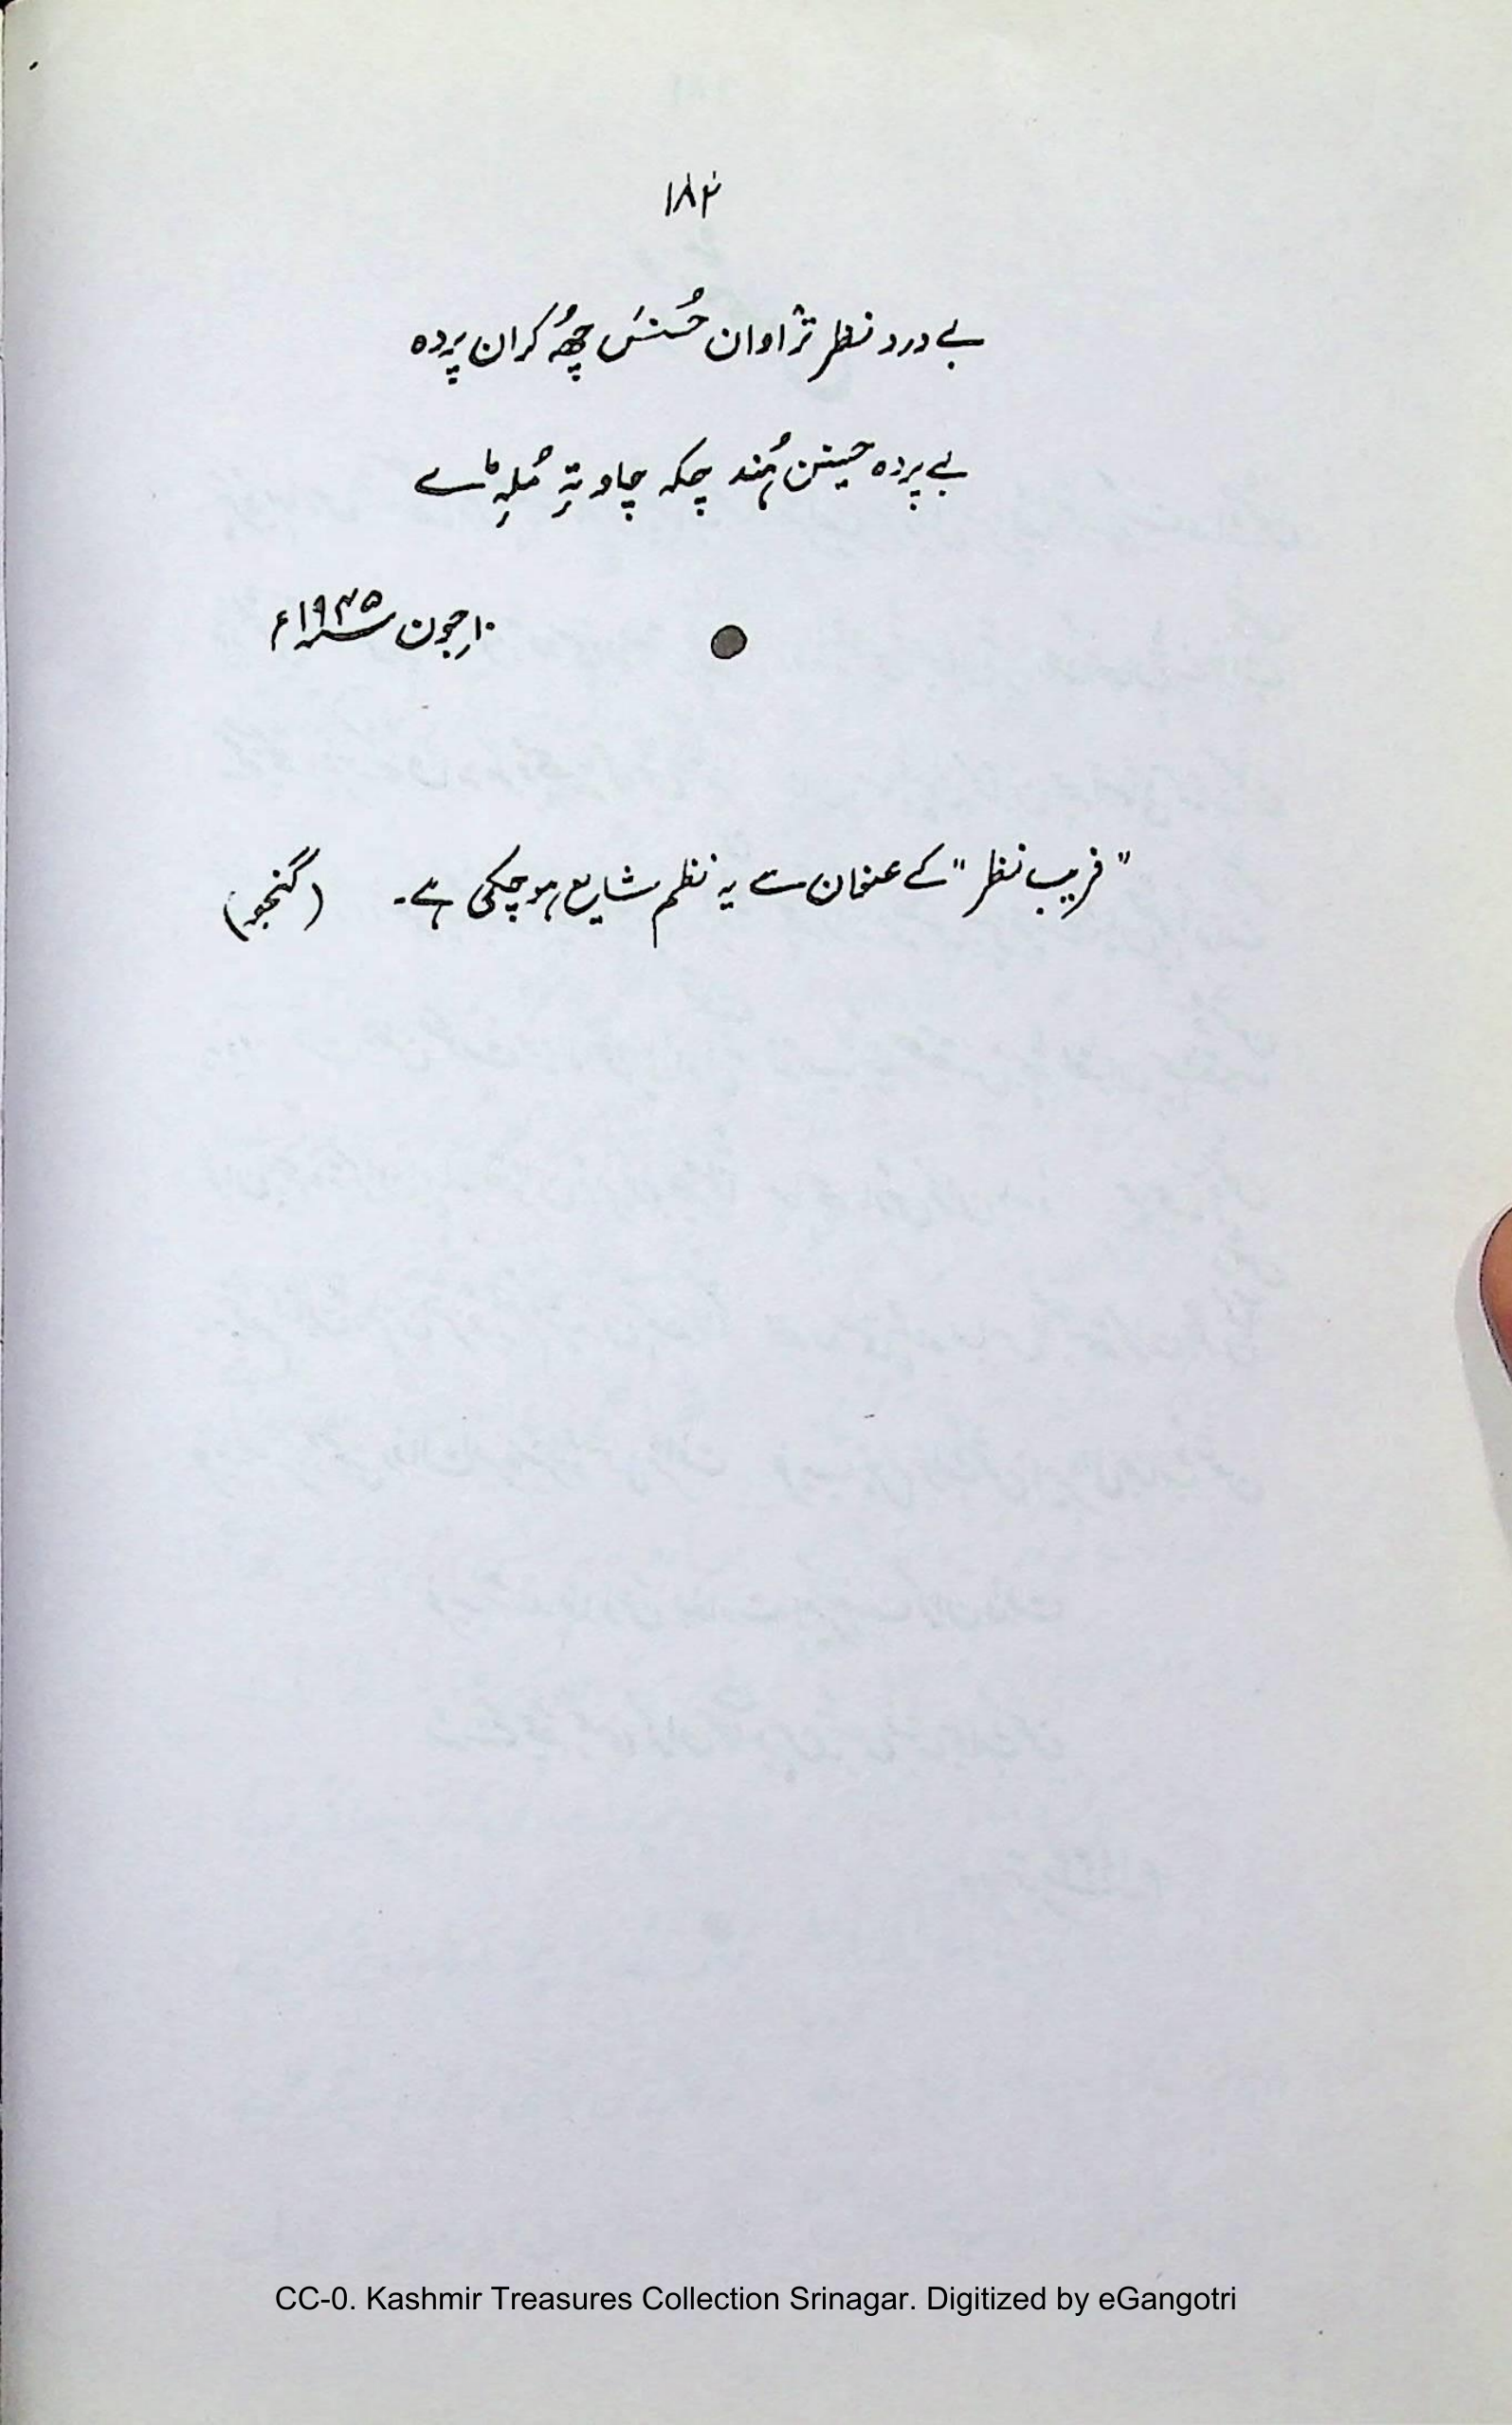 ۱۸۲
بے درد نظر ترٛاوان حُسنَس چھُ کران پردہ
بے پردہ حسینن ہُند چکہ چاو تہِ مُلہِ ماے
۱۰ جون ۱۹۴۵ء
"فریب نظر" کے عنوان سے یہ نظم شایع ہو چکی ہے۔ (گنجو)
CC-0. Kashmir Treasures Collection Srinagar. Digitized by eGangotri